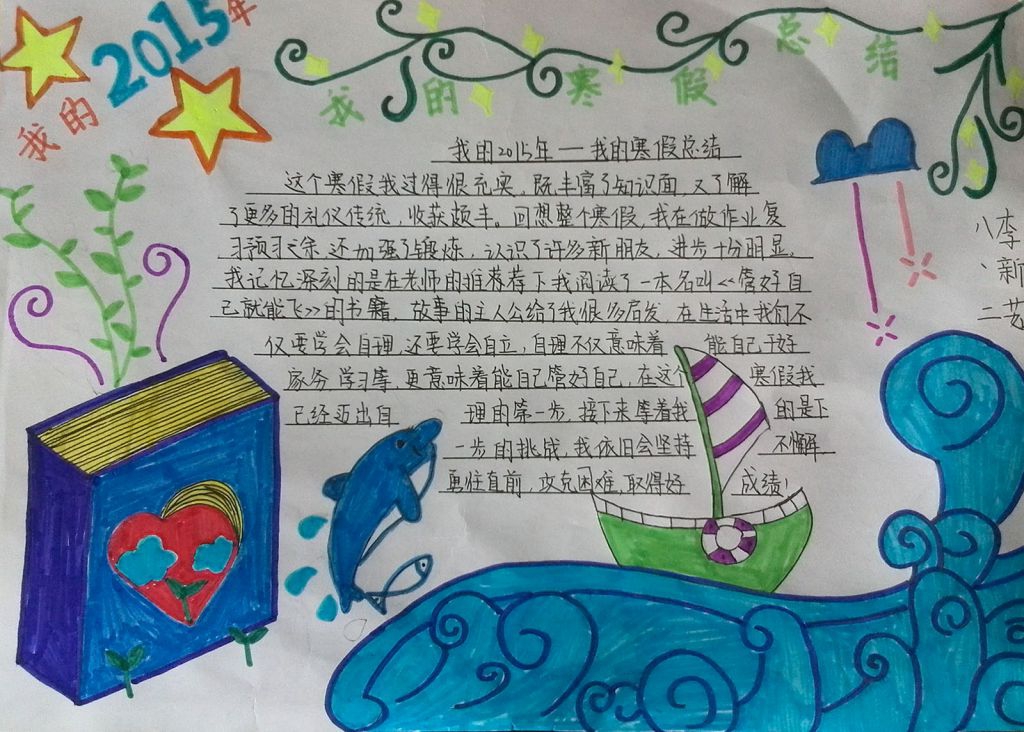 我的2015年
我的寒假总结
我的2015年—我的寒假总结
这个寒假我过得很充实，既丰富了知识面，又了解
了更多的礼仪传统，收获颇丰。回想整个寒假，我在做作业复
习预习之余，还加强了锻炼，认识了许多新朋友，进步十分明显。
我记忆深刻的是在老师的推荐荐下我阅读了一本名叫<<管好自
己就能飞>>的书籍，故事的主人公给了我很多启发，在生活中我们不
仅要学会自理，还要学会自立，自理不仅意味着能自己干好
家务学习等，更意味着能自己管好自己，在这个寒假我
已经迈出自理的第一步，接下来等着我的是下
一步的挑战，我依旧会坚持不懈
勇往直前，攻克困难，取得好成绩！
八李
、新
二艺